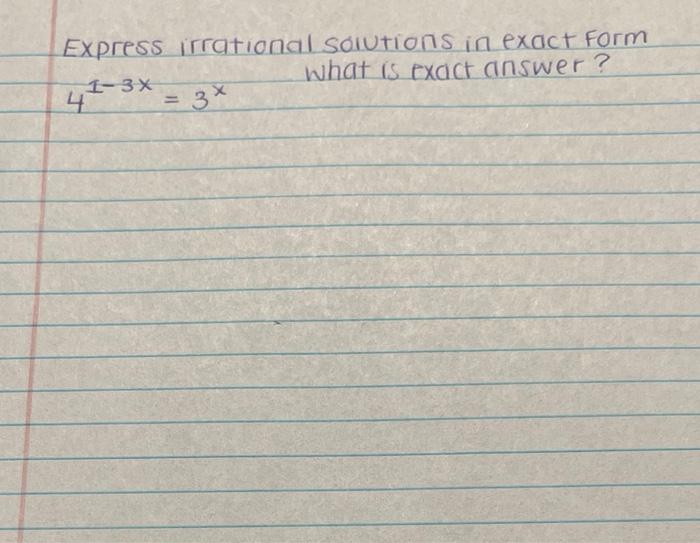 Express irrational solutions in exact form
What is exact answer?
4^{1-3x} = 3^x